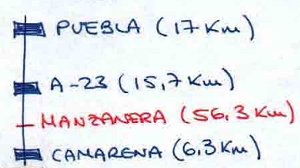 PUEBLA (17 Km)
A-23 (15,7 Km)
MANZANERA (56,3 Km)
CAMARENA (6,3 Km)